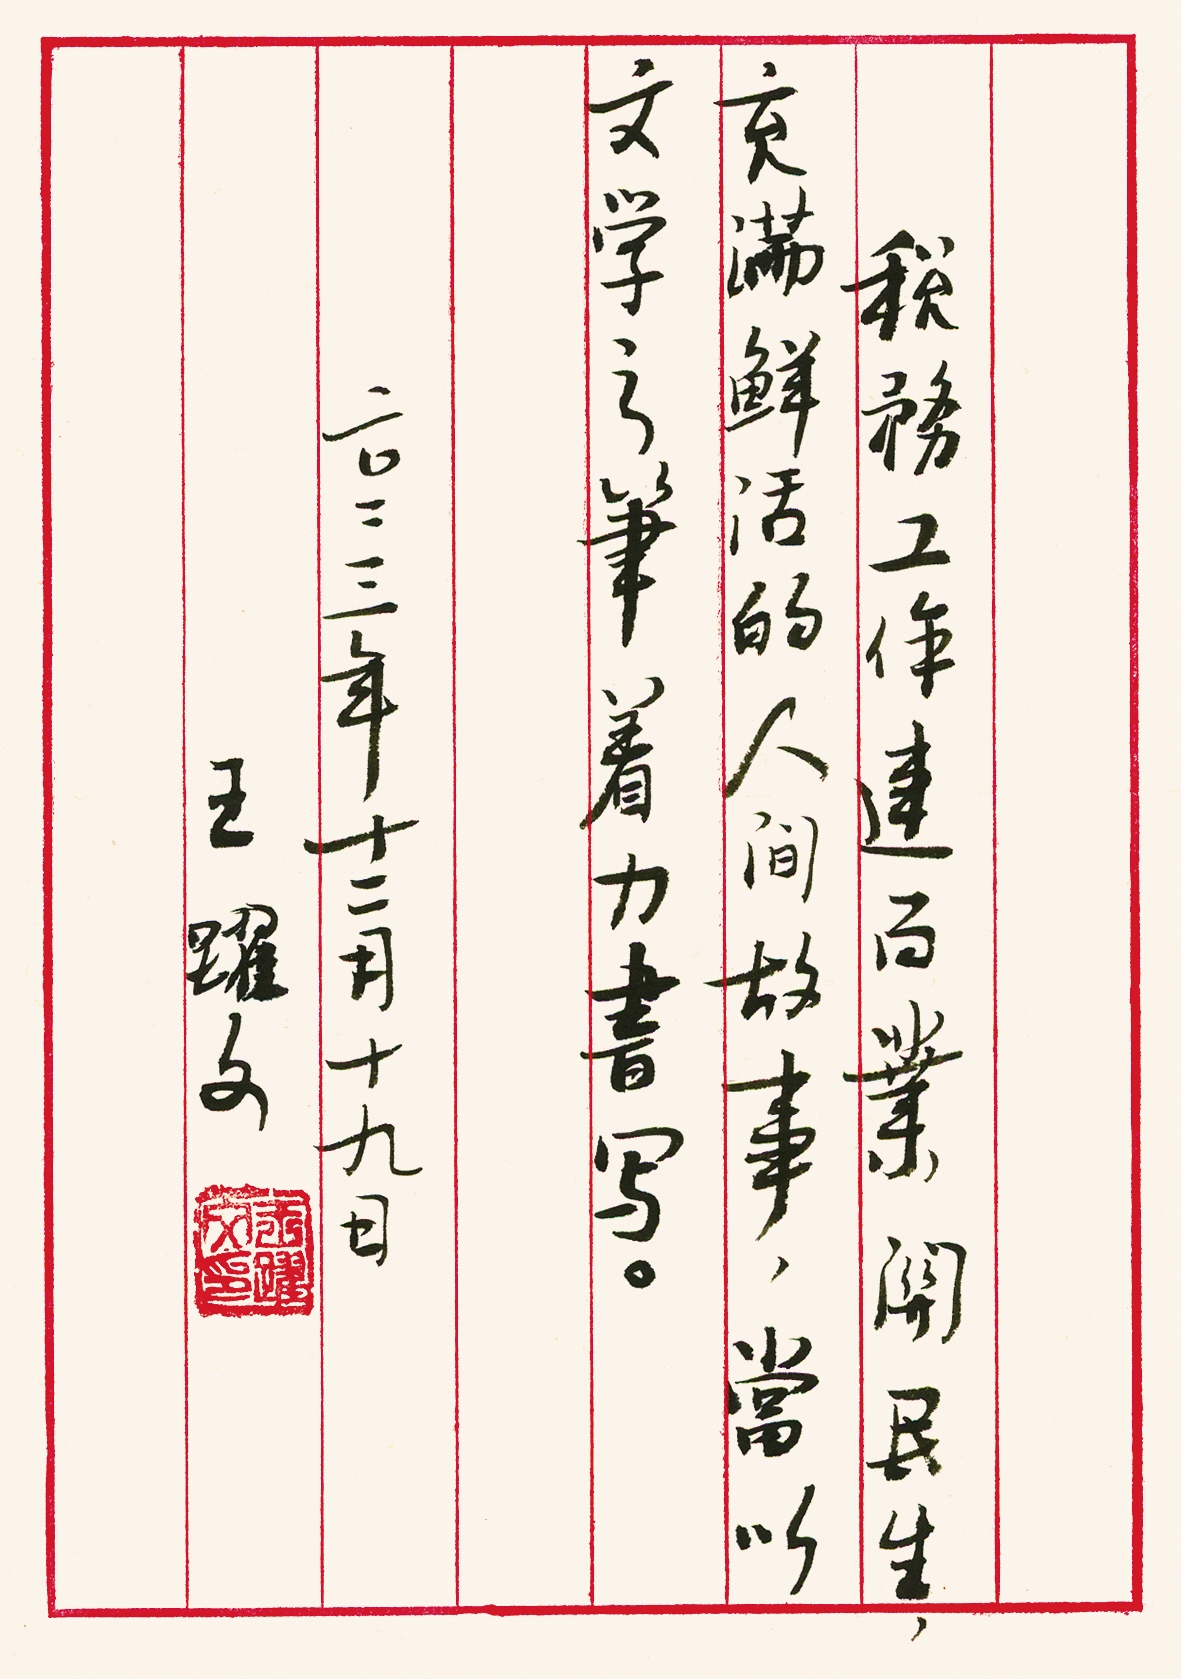 税務工作連百業關民生，
充滿鮮活的人間故事，當以
文学之筆着力書写。
二〇二三年十二月十九日
王躍文
王躍文印